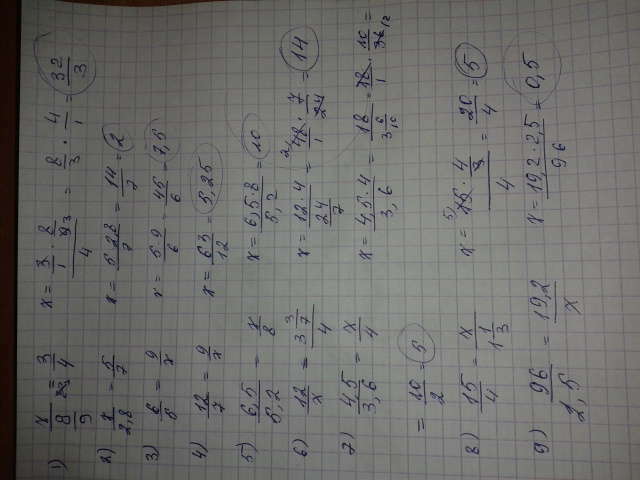 1) x/(8/9) = 3/(3/4) x = (3/1 · 8/9)/4 = 8/3 · 4/1 = 32/3
2) x/2,8 = 5/7 x = 5·2,8/7 = 14/7 = 2
3) 6/5 = 9/x x = 5·9/6 = 45/6 = 7,5
4) 12/7 = 9/x x = 63/12 = 5,25
5) 6,5/5,2 = x/8 x = 6,5·8/5,2 = 10
6) 12/x = 3 3/7/4 x = 12·4/(24/7) = 48/1 · 7/24 = 14
7) 4,5/3,6 = x/4 x = 4,5·4/3,6 = 18/(36/10) = 18/1 · 10/36 =
= 10/2 = 5
8) 15/4 = x/(1 1/3) x = 15 · 4/3 / 4 = 20/4 = 5
9) 96/2,5 = 19,2/x x = 19,2·2,5/96 = 0,5